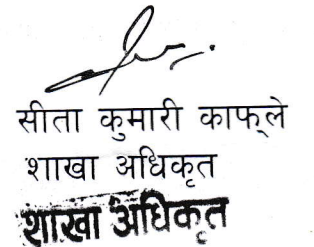 सीता कुमारी काफ्‌ले
शाखा अधिकृत
शाखा अधिकृत